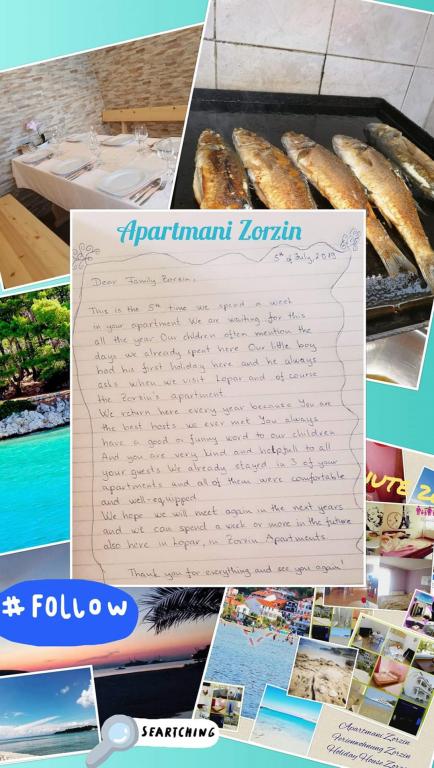 Apartmani Zorzin
5th of July, 2019
Dear Family Zorzin,
This is the 5th time we spend a week
in your apartment. We are waiting for this
all the year. Our children often mention the
days we already spent here. Our little boy
had his first holiday here and he always
asks when we visit Lopar and of course
the Zorzin's apartment.
We return here every year because You are
the best hosts we ever met. You always
have a good or funny word to our children.
And you are very kind and helpfull to all
your guests. We already stayed in 3 of your
apartments and all of them were comfortable
and well-equipped.
We hope we will meet again in the next years
and we can spend a week or more in the future
also here in Lopar, in Zorzin Apartments.
Thank you for everything and see you again!
# FOLLOW
SEARTCHING
Apartmani Zorzin
Ferienwohnung Zorzin
Holiday House Zorzin